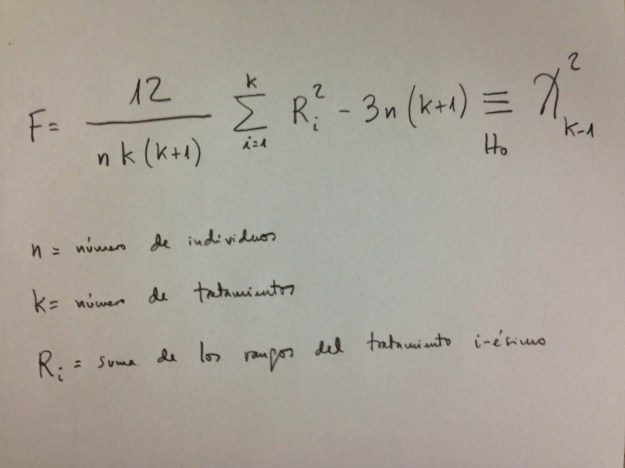 F = 12 / n k (k+1) ∑_{i=1}^{k} R_i^2 - 3n (k+1) ≡_{H_0} χ^2_{k-1}
n = número de individuos
k = número de tratamientos
R_i = suma de los rangos del tratamiento i-ésimo